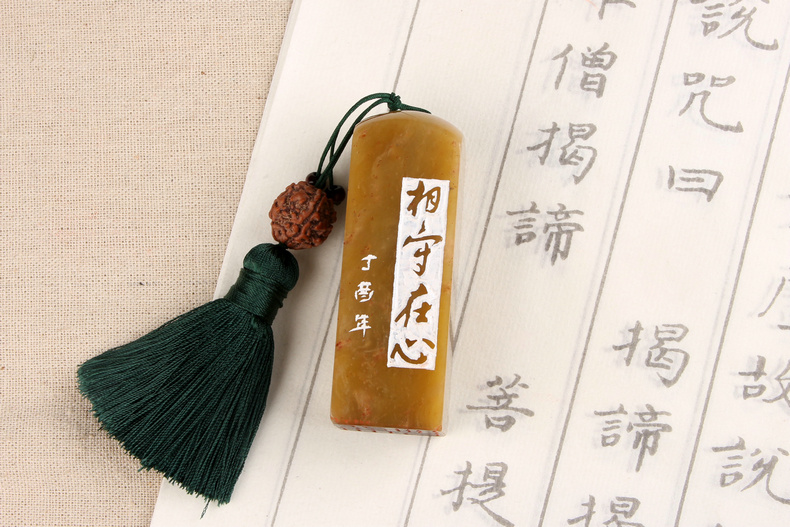 相守在心
丁酉年
說咒曰
揭諦揭
故說
僧揭諦
菩提